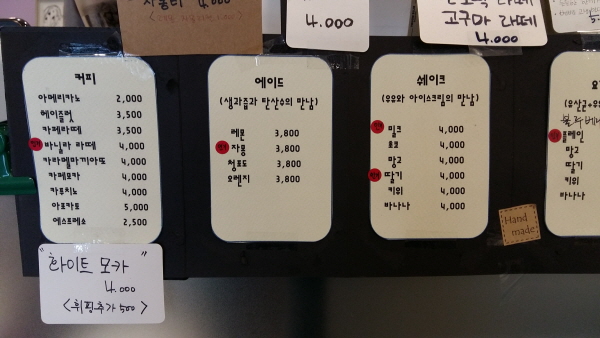 4,000
4.000
고구마 라떼
4.000
커피
아메리카노 2,000
헤이즐넛 3,500
카페라떼 3,500
바닐라 라떼 4,000
카라멜마끼아또 4,000
카페모카 4,000
카푸치노 4,000
아포카토 5,000
에스프레소 2,500
"화이트 모카"
4.000
<휘핑추가 500>
에이드
(생과즙과 탄산수의 만남)
레몬 3,800
자몽 3,800
청포도 3,800
오렌지 3,800
쉐이크
(우유와 아이스크림의 만남)
밀크 4,000
초코 4,000
망고 4,000
딸기 4,000
키위 4,000
바나나 4,000
Hand
made
요
(유산균+우
플레인
망고
딸기
키위
바나나